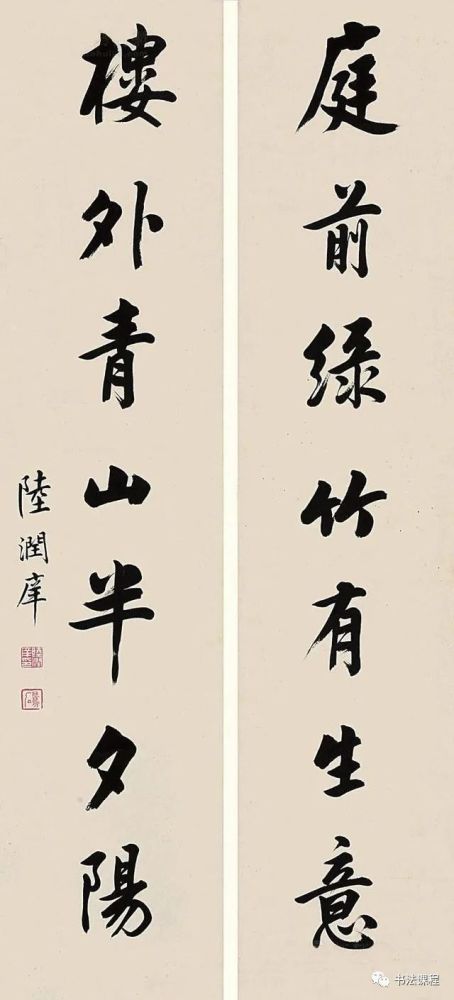 庭前綠竹有生意
樓外青山半夕陽
陸潤庠
书法课程